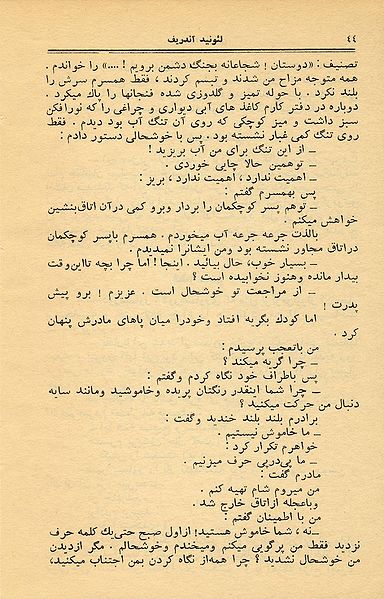 ۴۴ لئونید آندریف
تصنیف : «دوستان ! شجاعانه بجنگ دشمن برویم ! ....» را خواندم .
همه متوجه مزاح من شدند و تبسم کردند ، فقط همسرم سرش را
بلند نکرد . با حوله تمیز و گلدوزی شده فنجانها را پاك میکرد .
دوباره در دفتر کارم کاغذ های آبی دیواری و چراغی را که نورافکن
سبز داشت و میز کوچکی که روی آن تنگ آب بود دیدم . فقط
روی تنگ کمی غبار نشسته بود . پس با خوشحالی دستور دادم :
ــ از این تنگ برای من آب بریزید !
ــ توهمین حالا چایی خوردی .
ــ اهمیت ندارد ، اهمیت ندارد ، بریز :
پس بهمسرم گفتم :
ــ توهم پسر کوچکمان را بردار وبرو کمی درآن اتاق‌بنشین
خواهش میکنم .
بالذت جرعه جرعه آب میخوردم . همسرم باپسر کوچکمان
دراتاق مجاور نشسته بود ومن ایشانرا نمیدیدم .
ــ بسیار خوب، حال بیائید . اینجا ! اما چرا بچه تااین‌وقت
بیدار مانده وهنوز نخوابیده است ؟
ــ از مراجعت تو خوشحال است . عزیزم ! برو پیش
پدرت !
اما کودك بگریه افتاد وخودرا میان پاهای مادرش پنهان
کرد .
من باتعجب پرسیدم :
ــ چرا گریه میکند ؟
پس باطراف خود نگاه کردم وگفتم :
ــ چرا شما اینقدر رنگتان پریده وخاموشید ومانند سایه
دنبال من حرکت میکنید ؟
برادرم بلند بلند خندید وگفت :
ــ ما خاموش نیستیم .
خواهرم تکرار کرد :
ــ ما پی‌درپی حرف میزنیم .
مادرم گفت :
من میروم شام تهیه کنم .
وباعجله ازاتاق خارج شد .
من با اطمینان گفتم :
ــ نه ، شما خاموش هستید! ازاول صبح حتی‌یك کلمه حرف
نزدید فقط من پرگویی میکنم ومیخندم وخوشحالم . مگر ازدیدن
من خوشحال نشدید ؟ چرا همه‌از نگاه کردن بمن اجتناب میکنید،